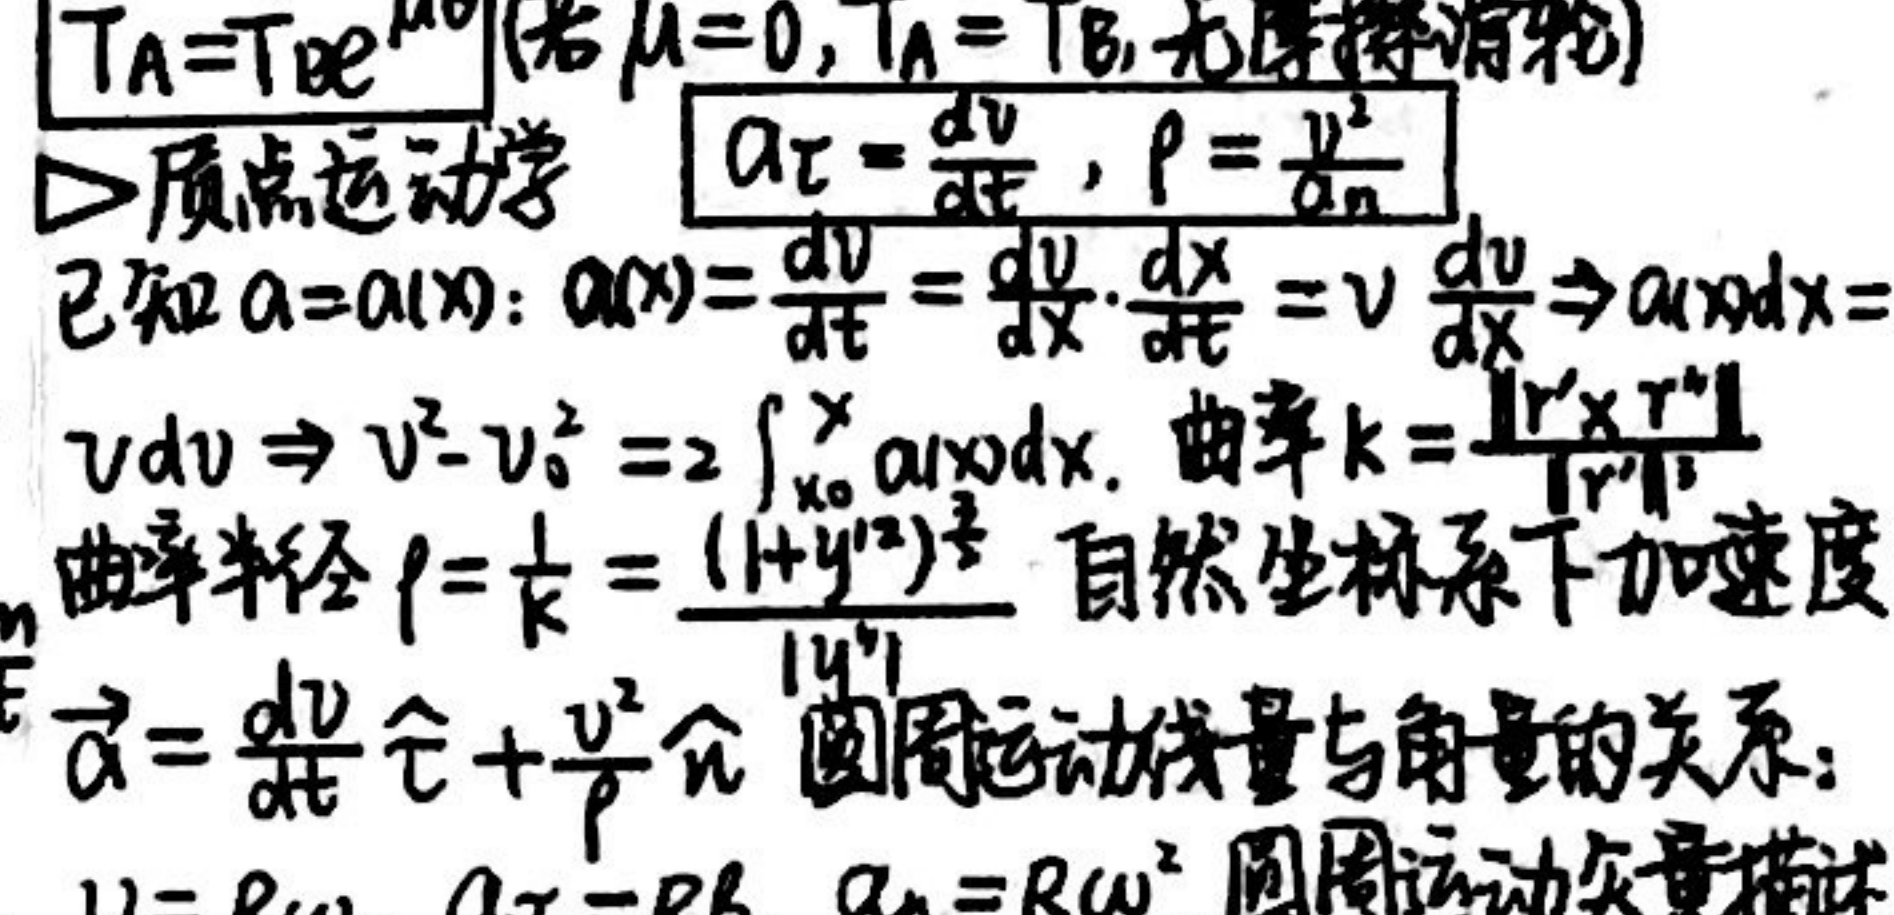 T_A=T_Be^{μθ} (若μ=0, T_A=T_B, 无摩擦滑轮)
▷质点运动学 a_τ=dv/dt, ρ=v²/a_n
已知a=a(x): a(x)=dv/dt=dv/dx·dx/dt=v dv/dx⇒a(x)dx=
vdv⇒v²-v₀²=2∫_{x₀}^{x}a(x)dx. 曲率k=‖r'×r"‖/‖r'‖³
曲率半径ρ=1/k=(1+y'²)^{3/2}/|y"| 自然坐标系下加速度
a⃗=dv/dt τ̂+v²/ρ n̂ 圆周运动线量与角量的关系:
v=Rω, a_τ=Rβ, a_n=Rω² 圆周运动矢量描述